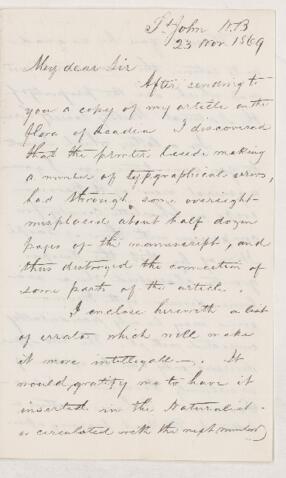 St John N.B
23 Nov. 1869
My dear Sir
After sending to
you a copy of my article on the
flora of Acadia I discovered
that the printer beside making
a number of typographical errors,
had through some oversight
misplaced about half dozen
pages of the manuscript, and
thus destroyed the connection of
some parts of the article.
I enclose herewith a list
of errata which will make
it more intelligable. It
would gratify me to have it
inserted in the Naturalist
or circulated with the next number